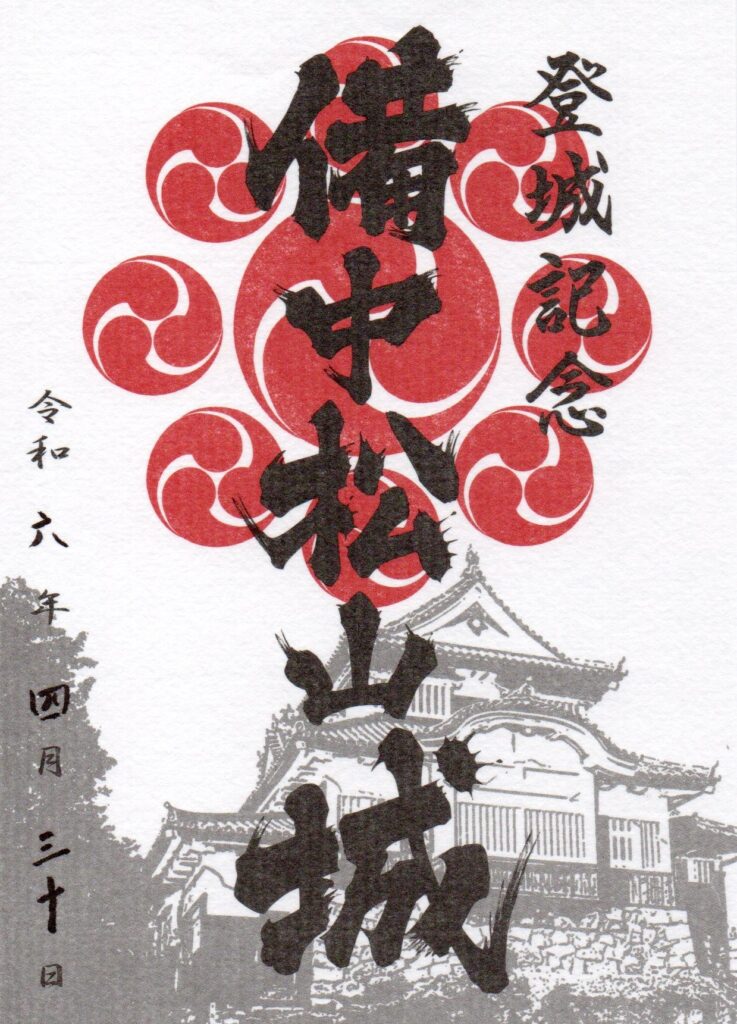 登城記念
備中松山城
令和六年四月三十日